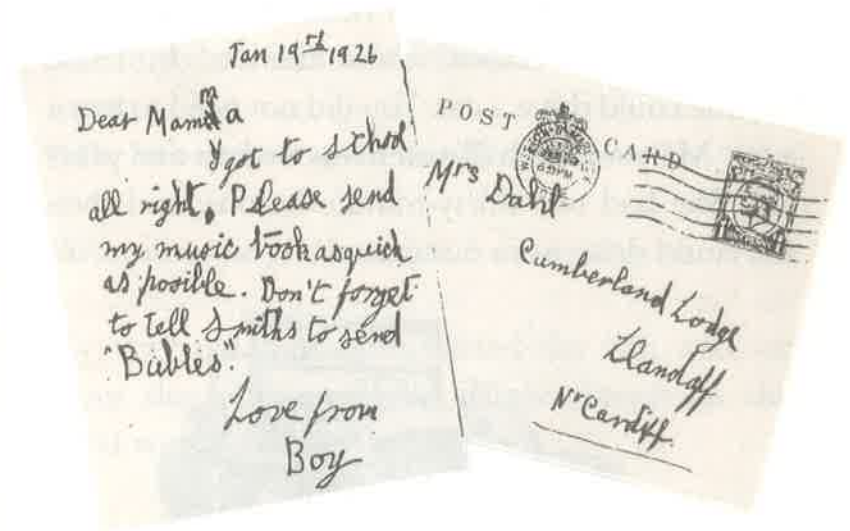 Jan 19rd 1926
Dear Mama
I got to school
all right. Please send
my music book as quick
as posible. Don't forget
to tell Smiths to send
"Bubbles".
Love from
Boy
POST CARD
Mrs Dahl
Cumberland Lodge
Llandaff
Nr Cardiff.